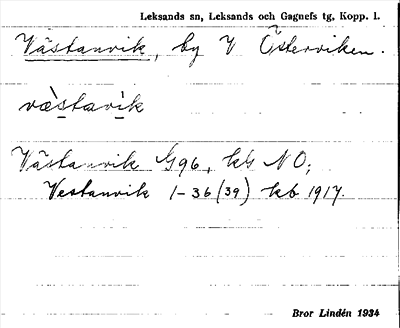 Leksands sn, Leksands och Gagnefs tg, Kopp. l.
Västanvik, by V Österviken.
væ̀stavìk
Västanvik G96, kb NO;
Vestanvik 1-36 (39) kb 1917.
Bror Lindén 1934